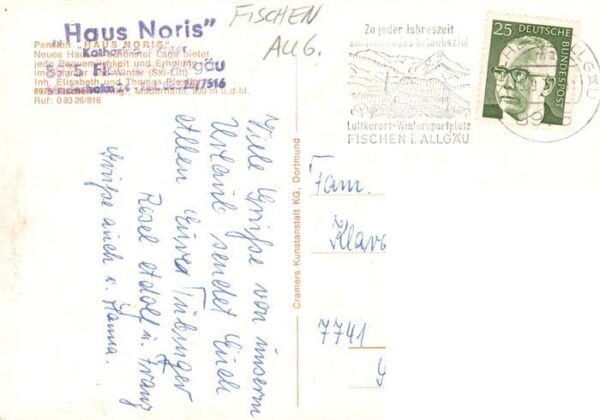 FISCHEN
AUG.
Haus Noris"
Pension "HAUS NORIS"
Neues Haus in Lage bietet
jede Bequemlichkeit und Erholung
im Sommer und Winter (Ski-Lift)
Inh. Elisabeth und Thomas
900 m ü. d. M.
Ruf: 0 83 26/816
7516
Viele Grüße von unserem
Urlaub sendet Euch
Allen Eure Tübinger
Resel Adolf u. Franz
Grüße auch v. Hanna.
Cramers Kunstanstalt KG, Dortmund
Zu jeder Jahreszeit
ein lohnendes Urlaubsziel
Luftkurort-Wintersportplatz
FISCHEN I. ALLGÄU
25
DEUTSCHE
BUNDESPOST
ALLGÄU
Fam.
Klav
7741